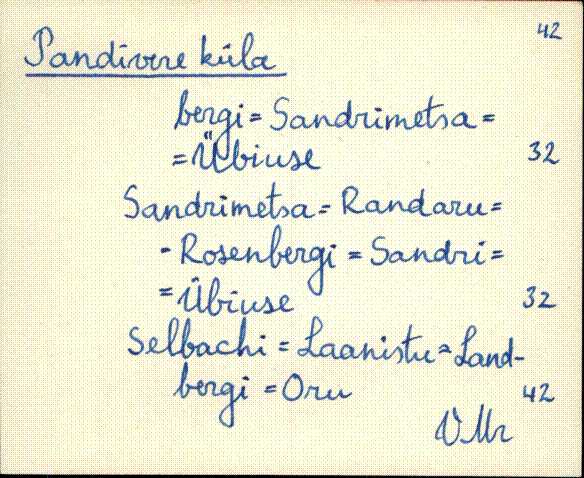 42
Pandivere küla
bergi = Sandrimetsa =
= Übiuse 32
Sandrimetsa = Randaru =
- Rosenbergi = Sandri =
= Übiuse 32
Selbachi = Laanistu = Land-
bergi = Oru 42
VMr